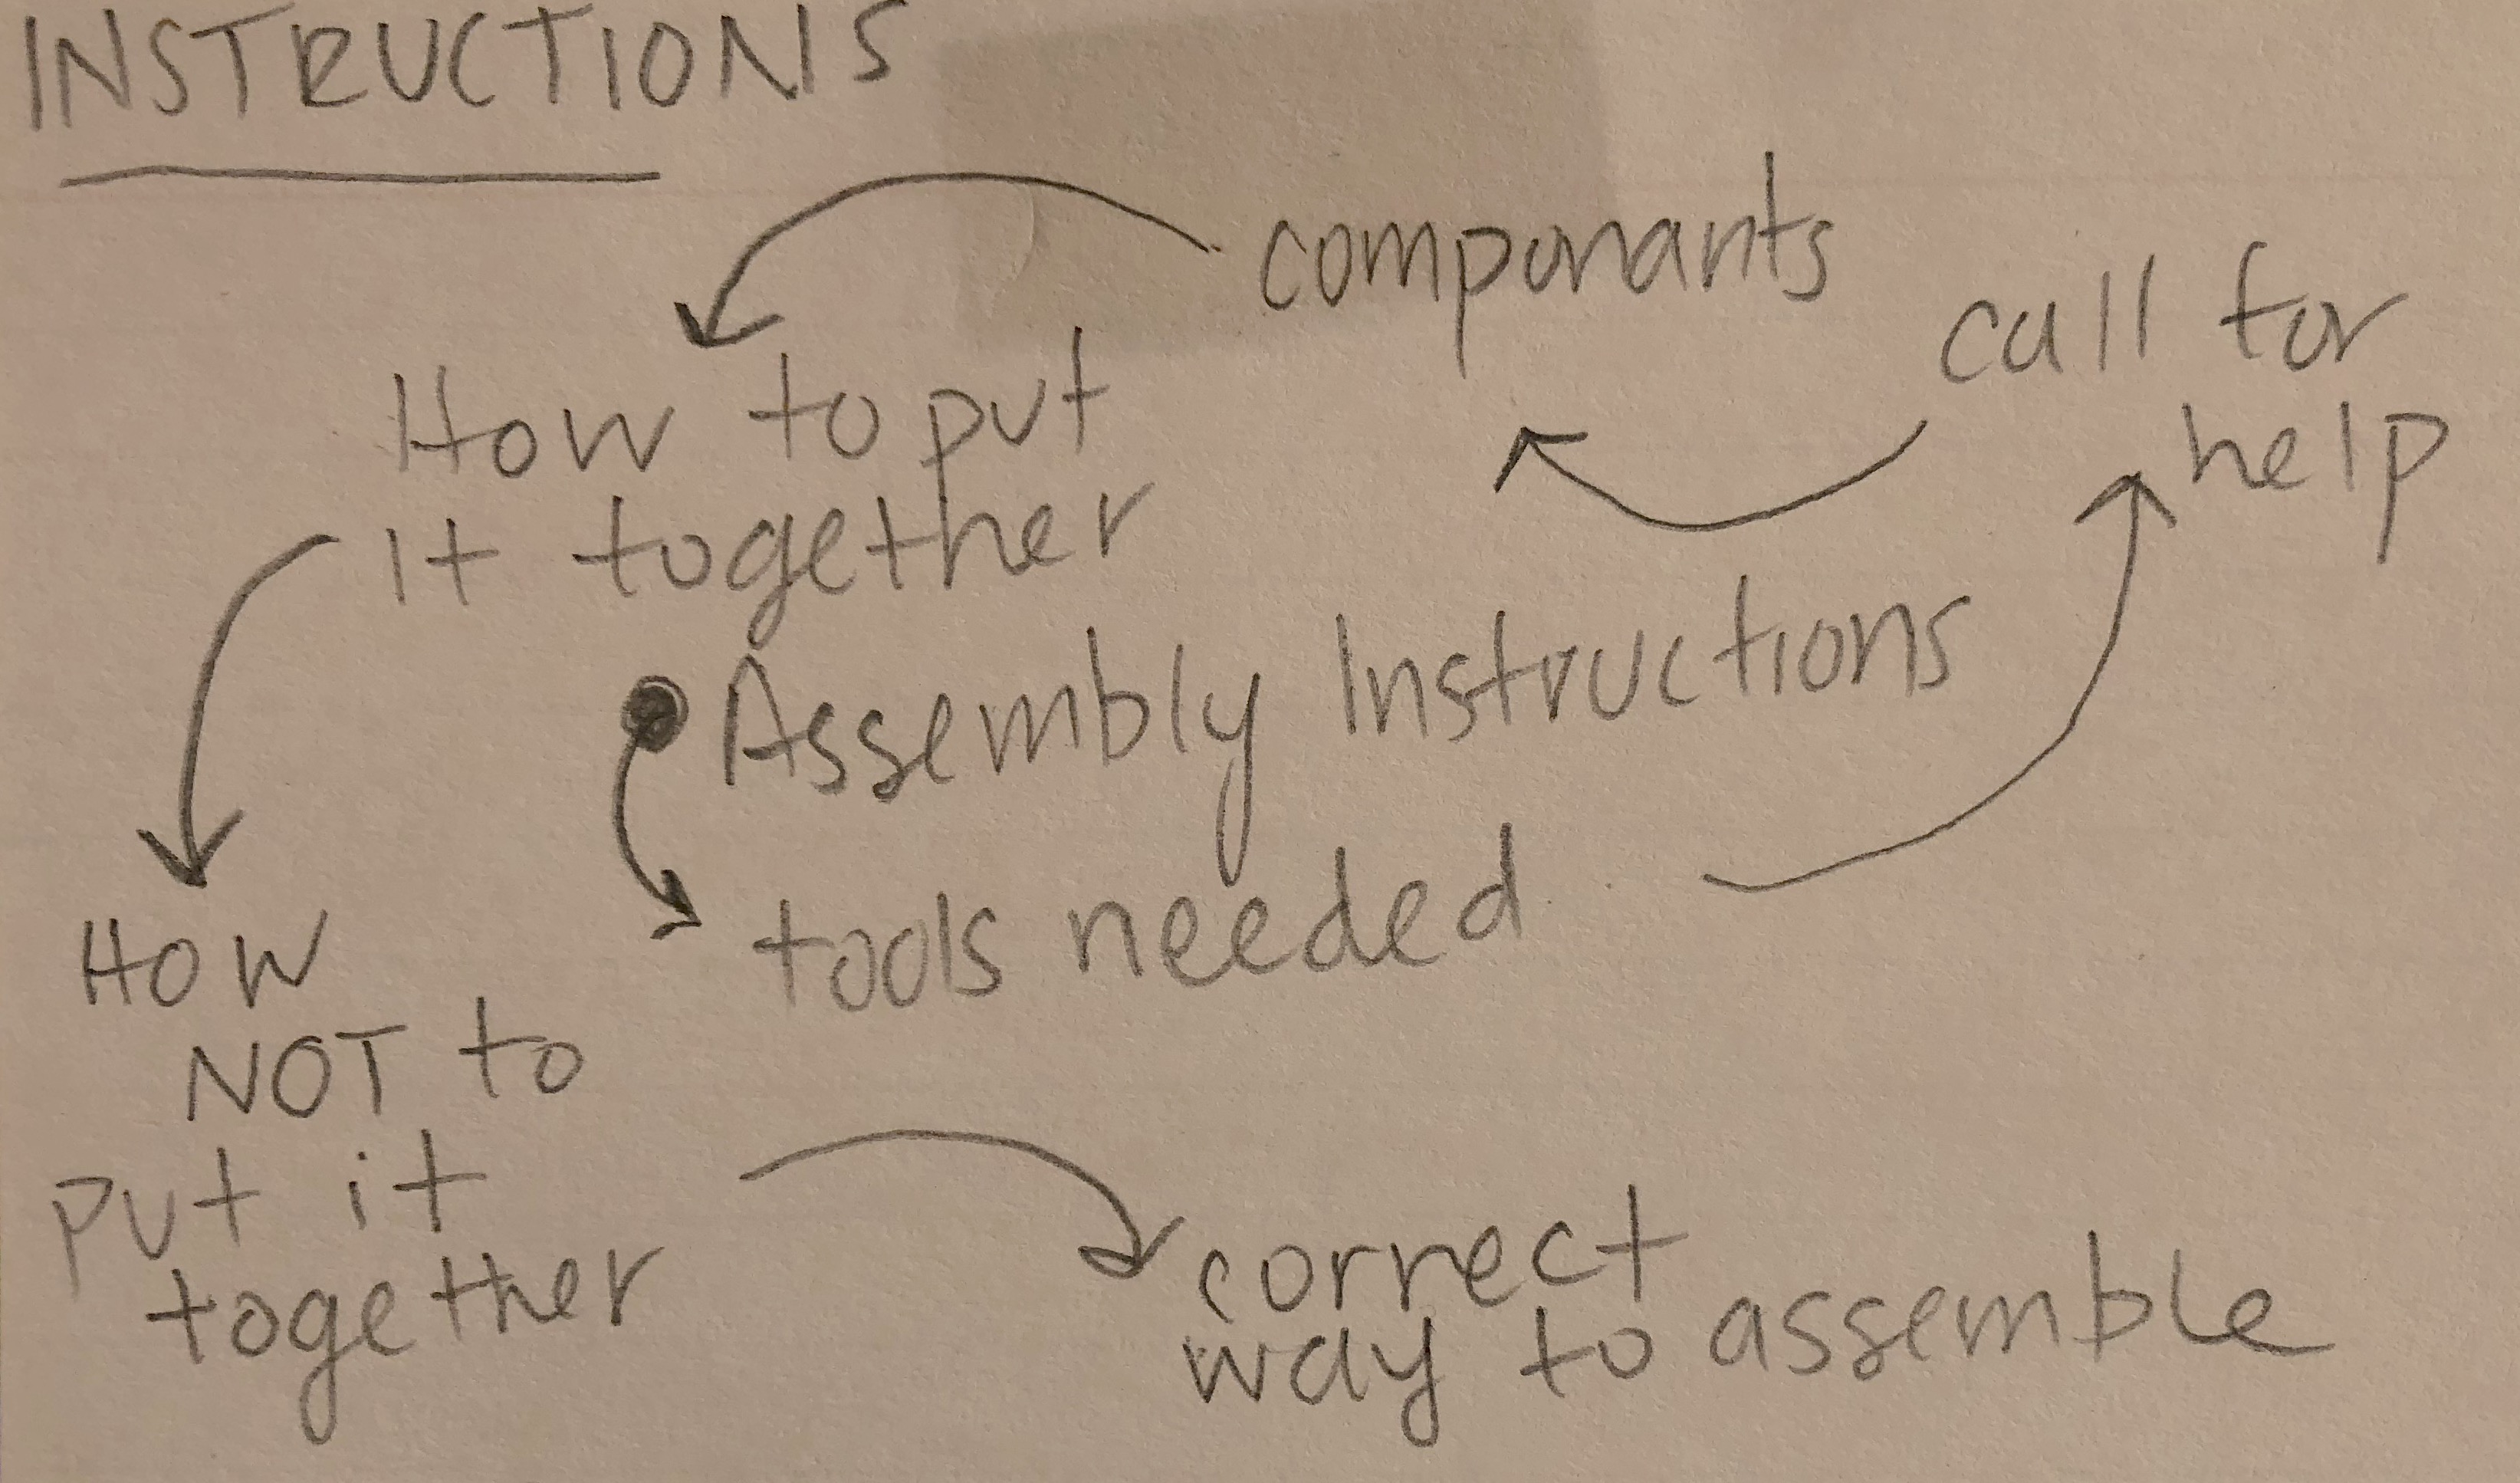 INSTRUCTIONS
componants
call for
help
How to put
it together
Assembly Instructions
tools needed
How
NOT to
put it
together
correct
way to assemble